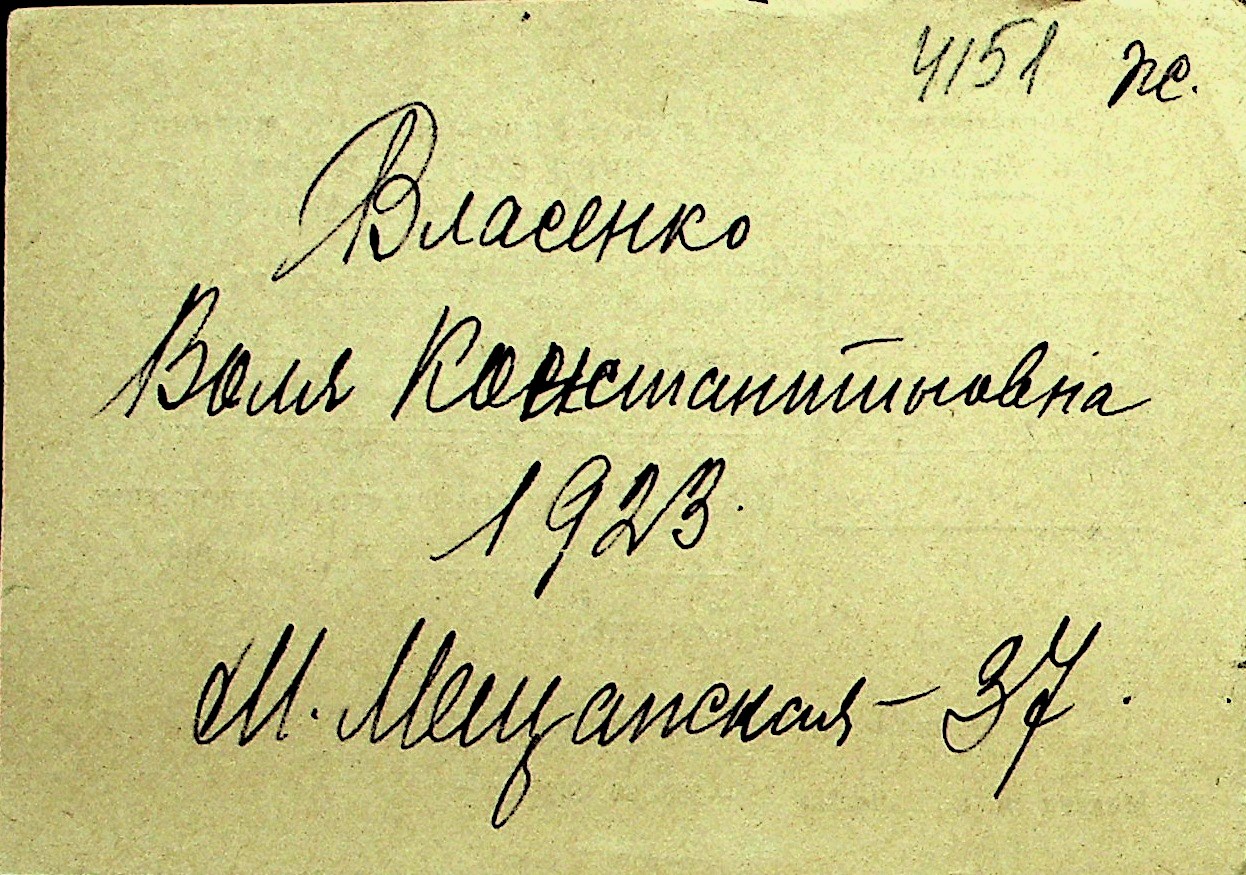 4151 пс.
Власенко
Воля Константиновна
1923.
М. Мещанская - 37.